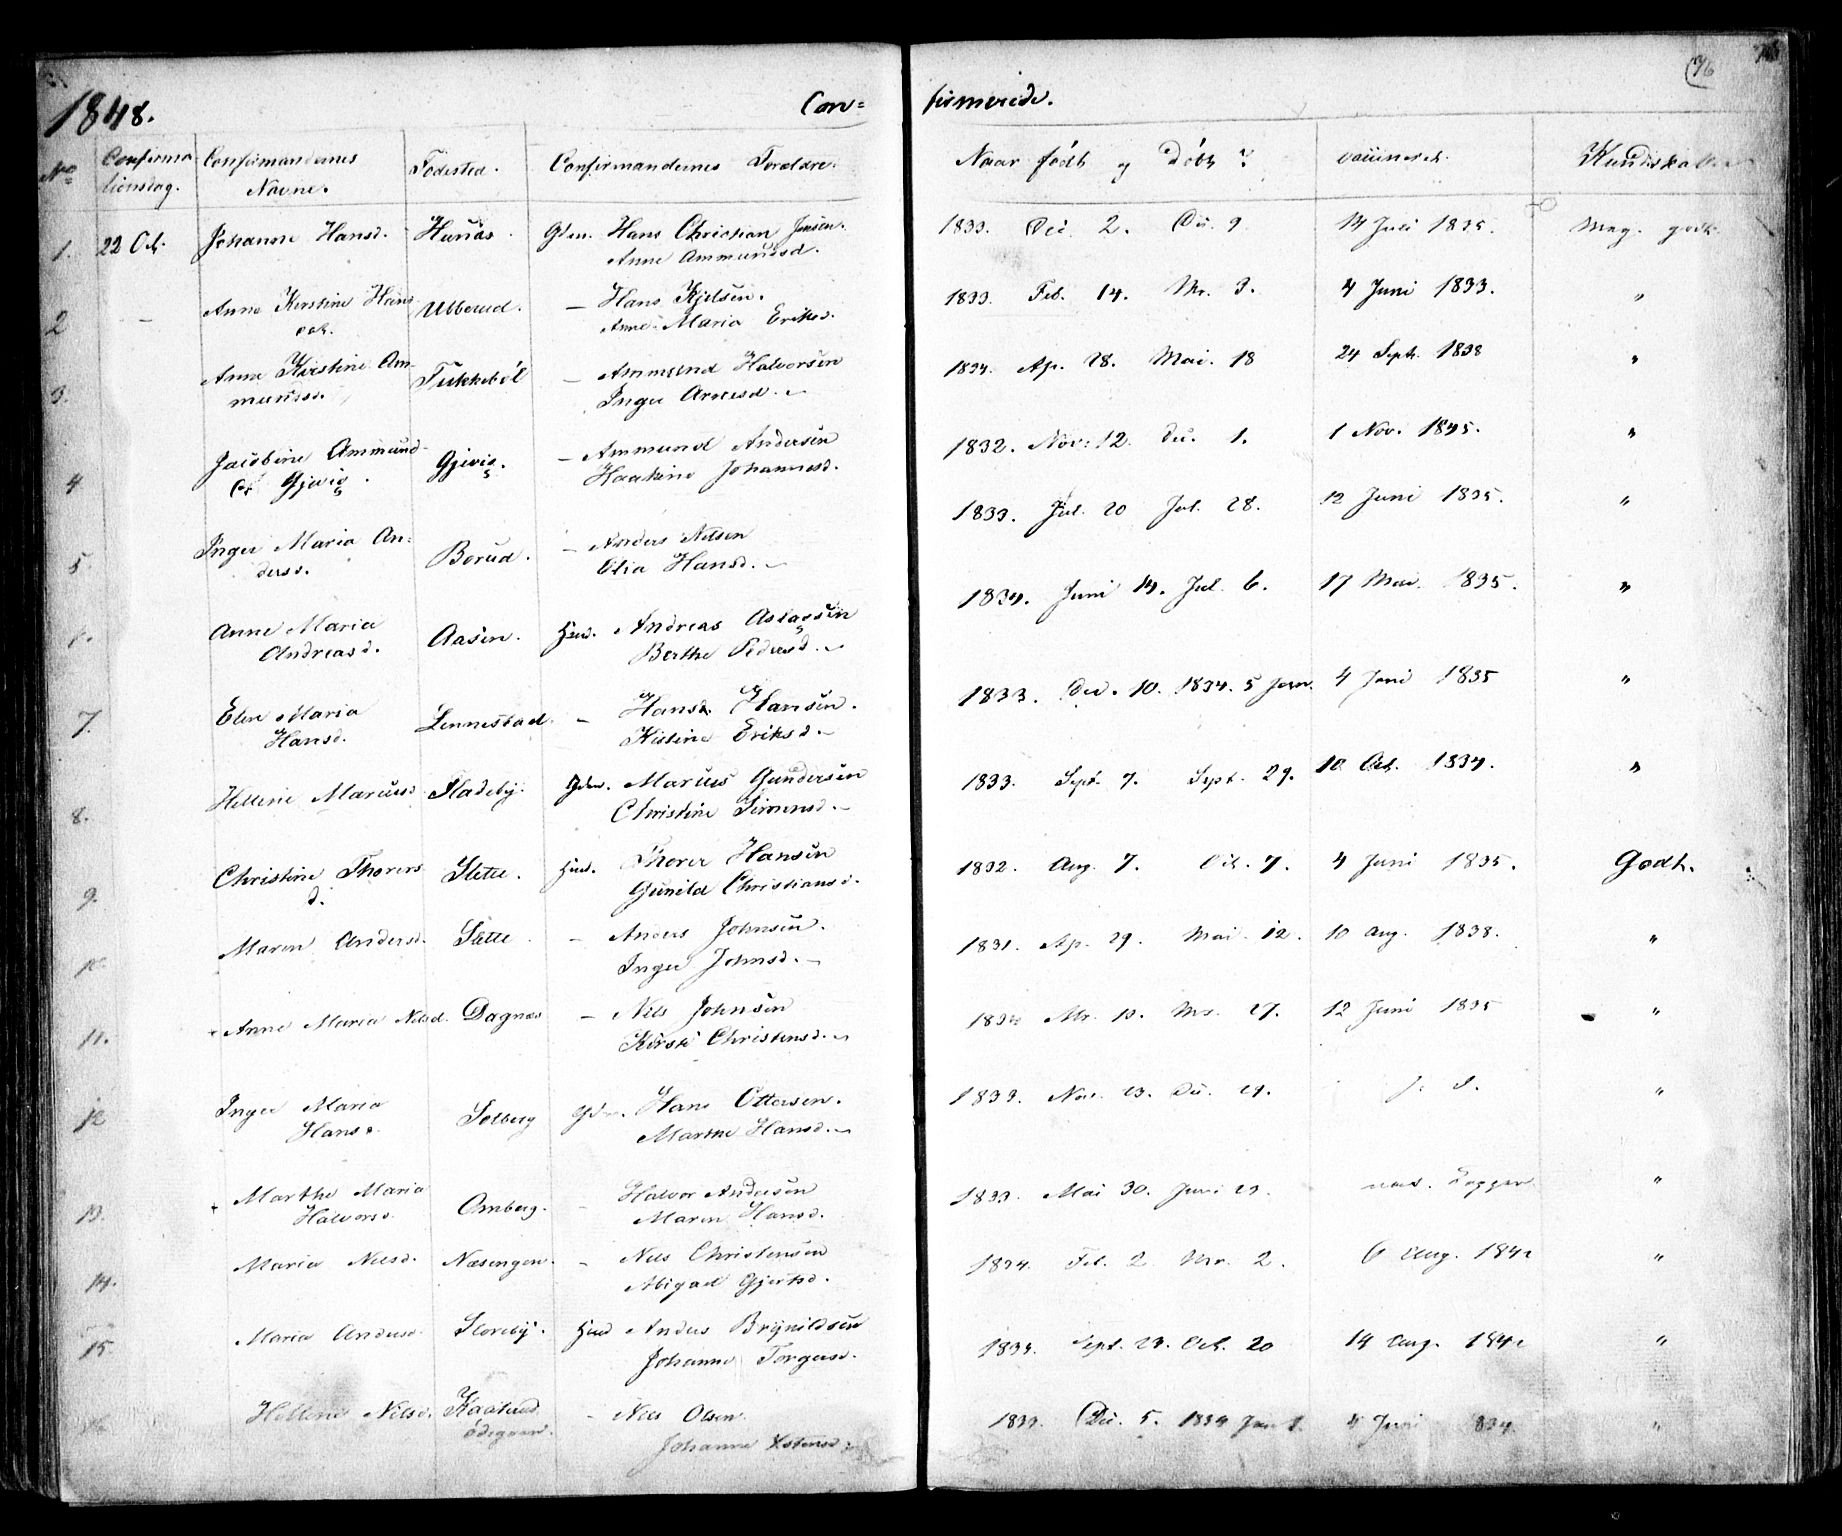 76
1848. Con= firmerede.
No Confirma Confirmandernes Fødested. Confirmandernes Forældre. Naar født og døbt? vaccineret. Kundskab
tionsdag. Navne.
1. 22 Oct. Johanne Hansd. Hunås. Gdm. Hans Christian Jensen. 1833. Dec. 2. Du. 9 14 Juli 1835. Meg. godt.
Anne Ammundsd.
2 — Anne Kirstine Hans Ubberud. — Hans Kjelsen. 1833. Feb. 14. Mr. 3. 4 Juni 1833. "
dat. Anne Maria Eriksd.
3. Anne Kirstine Am- Tukkebøl — Ammund Halvorsen 1834. Ap. 28. Mai. 18 24 Sept. 1838 "
mundsd. Inger Arnesd.
4 Jacobine Ammund- Gjevig. — Ammund Andersen 1832. Nov. 12. Du. 1. 1 Nov. 1845. "
Gjevig. Haakine Johannesd.
5. Inger Maria An= Borud. — Anders Nilsen 1833. Jul. 20 Jul. 28. 12 Juni 1835. "
dersd. Olia Hansd.
6. Anne Maria Aasen. Huus. Andreas Aslagsen 1834. Juni 14. Jul. 6. 17 Mai. 1835. "
Andreasd. Berthe Pedersd.
7. Elen Maria Lennestad. — Hans Hansen. 1833. Dec. 10. 1834. 5 Janr. 4 Juni 1835 "
Hansd. Kistine Eriksd.
8. Hellene Mariusd. Sladeby. Gdm. Marius Gundersen 1833. Sept. 7. Sept. 29. 10 Oct. 1834. "
Christine Simensd.
9. Christine Thorers Slette. Huus. Thorer Hansen 1832. Aug. 7. Oct. 7. 4 Juni 1835. Godt.
d. Gunild Christiansd.
10. Maren Andersd. Slette. — Anders Johnsen. 1831. Ap. 29. Mai. 12. 10 Aug. 1838. "
Inger Johnsd.
11. Anne Maria Nilsd. Dagnæs — Nils Johnsen 1834 Mr. 10. Mr. 27. 12 Juni 1835 "
Kirsti Christensd.
12 Inger Maria Solberg Gdm. Hans Ottersen. 1833. Nov. 23. Du. 29. "
Hansd. Marthe Hansd.
13. Marthe Maria Omberg. — Halvor Andersen 1833. Mai 30. Juni 23. nat. Kopper "
Halvorsd. Maren Hansd.
14. Maria Nilsd. Næsengen. — Nils Christensen 1834. Feb. 2 Mr. 2. 6 Aug. 184 "
Abigael Gjertsd.
15. Maria Andersd. Storeby. Huus Anders Brynildsen 1833. Sept. 23. Oct. 20 14 Aug. 184 "
Johanne Torgersd.
16. Hellene Nilsd. Kaatud — Nils Olsen. 1833. Dec. 5. 1834 Jan 1. 4 Juni 834. "
ødegaard. Johanne